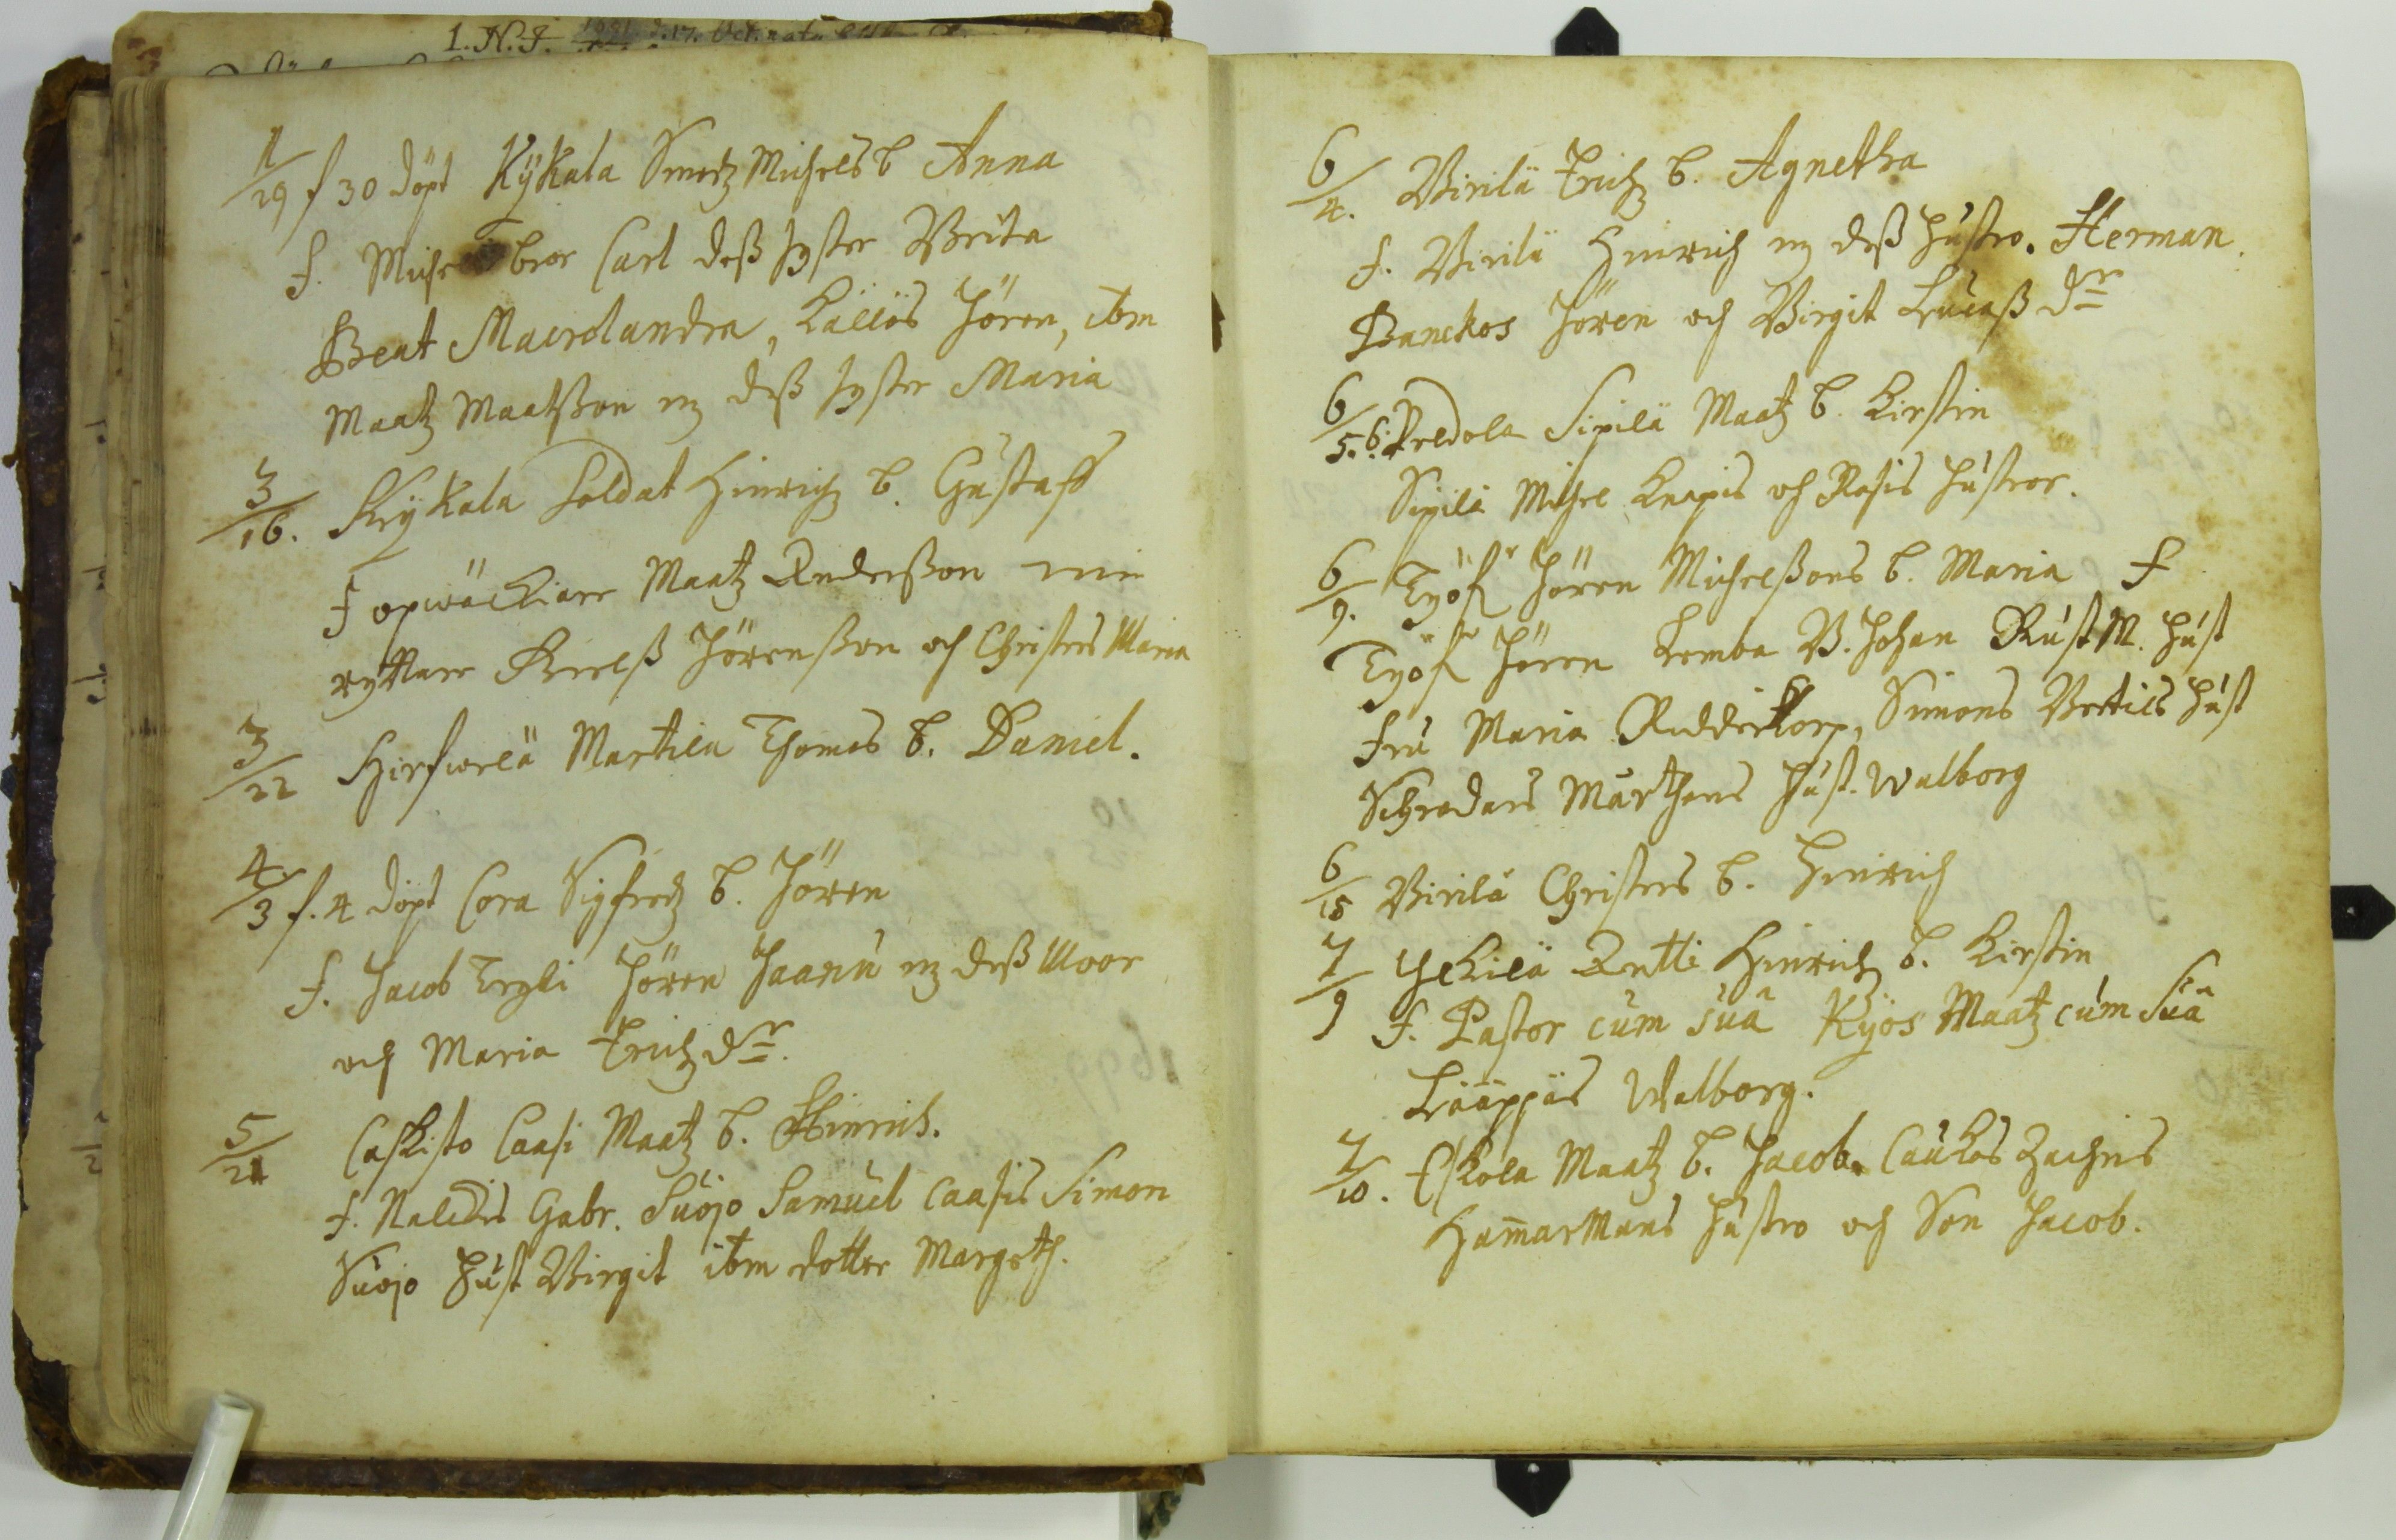 1. N. J.
1/29 f 30 döpt Kÿkala Smedz Michels b Anna
f. Michels bror Carl deß syster Brita
Beat Macrolandra, Källös Jören, ibm
Maatz Maatßon mz deß syster Maria
3/16. Kÿkala Soldat Hinrichz b. Gustaff
f opwächiare Maatz Anderßon
ryttare Breelß Jörenßon och Christers Maria
3/22 Hirfwelä Martila Thomas b. Daniel.
4/3 f. 4 döpt Cora Sigfredz b. Jören
f. Jacob Jören Jaanu mz deß Moor
och Maria Erichz dr.
5/21 Caskisto Caasi Maatz b. Hinrich.
f. Gabr. Suojo Samuel Caasis Simon
Suojo hust Birgit ibm dotter Margeth.
6/4. Virilä Erichz b. Agnetha
f. Virilä Hinrich mz deß hustro. Herman.
Banckos Jören och Birgit Lucaß dr
6/5. 6. Predola Sipilä Maatz b. Kirstin
Sipilä Michel Knapis och Rasis hustror.
6/9. Työf Jören Michelßons b. Maria f
Työf Jören Lemba B. Johan Rust M. hust
fru Maria Ridderkorp, Simons Bertils hust
Schrodars Mårthens hust. Walborg
6/15 Virilä Christers b. Hinrich
7/9 Ylkilä Antti Hinrichz b. Kirstin
f. Pastor cum suâ Kyös Maatz cum Suâ
Lääppäs Walborg.
7/10. Eskola Maatz b. Jacob. Caukos Zachris
Ham̄armans hustro och Son Jacob.